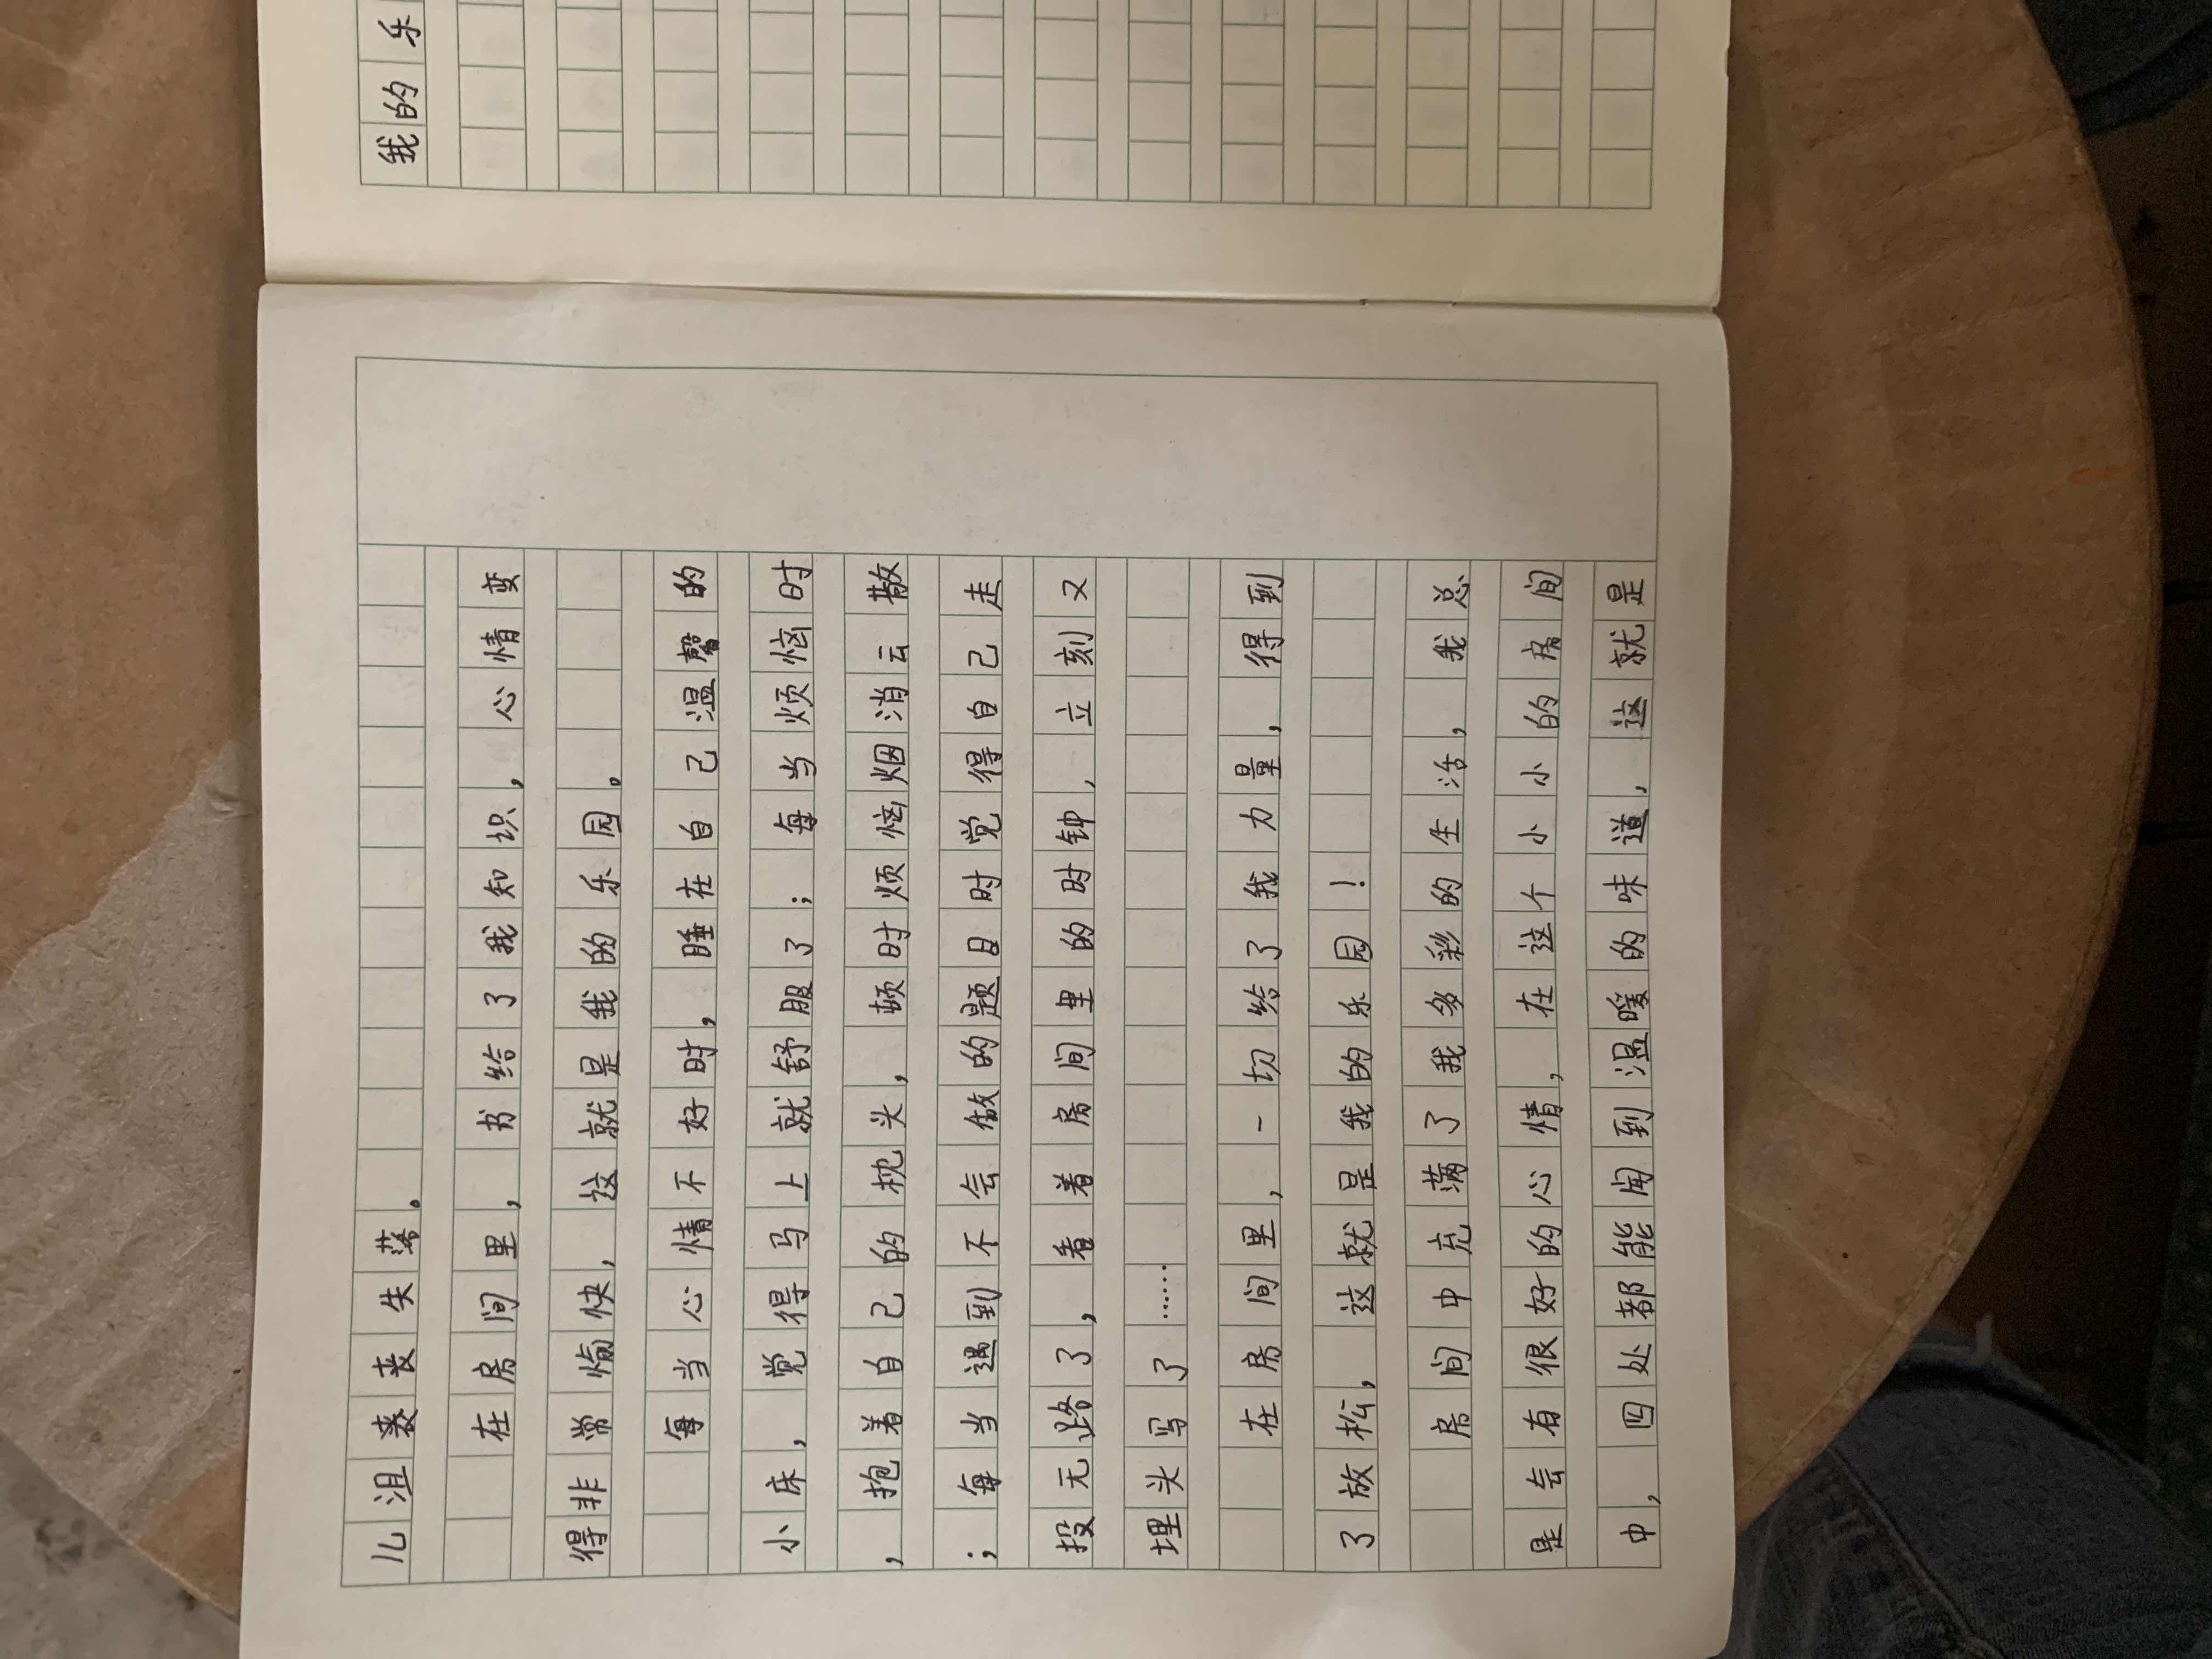 儿沮丧丧失落。
在房间里，书给了我知识，心情变
得非常愉快，这就是我的乐园。
每当心情不好时，睡在自己温馨的
小床，觉得马上就舒服了；每当烦恼时
，抱着自己的枕头，顿时烦恼烟消云散
；每当遇到不会做的题目时觉得自己走
投无路了，看着房间里的时钟，立刻又
埋头写了……
在房间里，一切给了我力量，得到
了放松，这就是我的乐园！
房间中充满了我多彩的生活，我总
是会有很好的心情，在这个小小的房间
中，四处都能闻到温暖的味道，这就是
我的乐